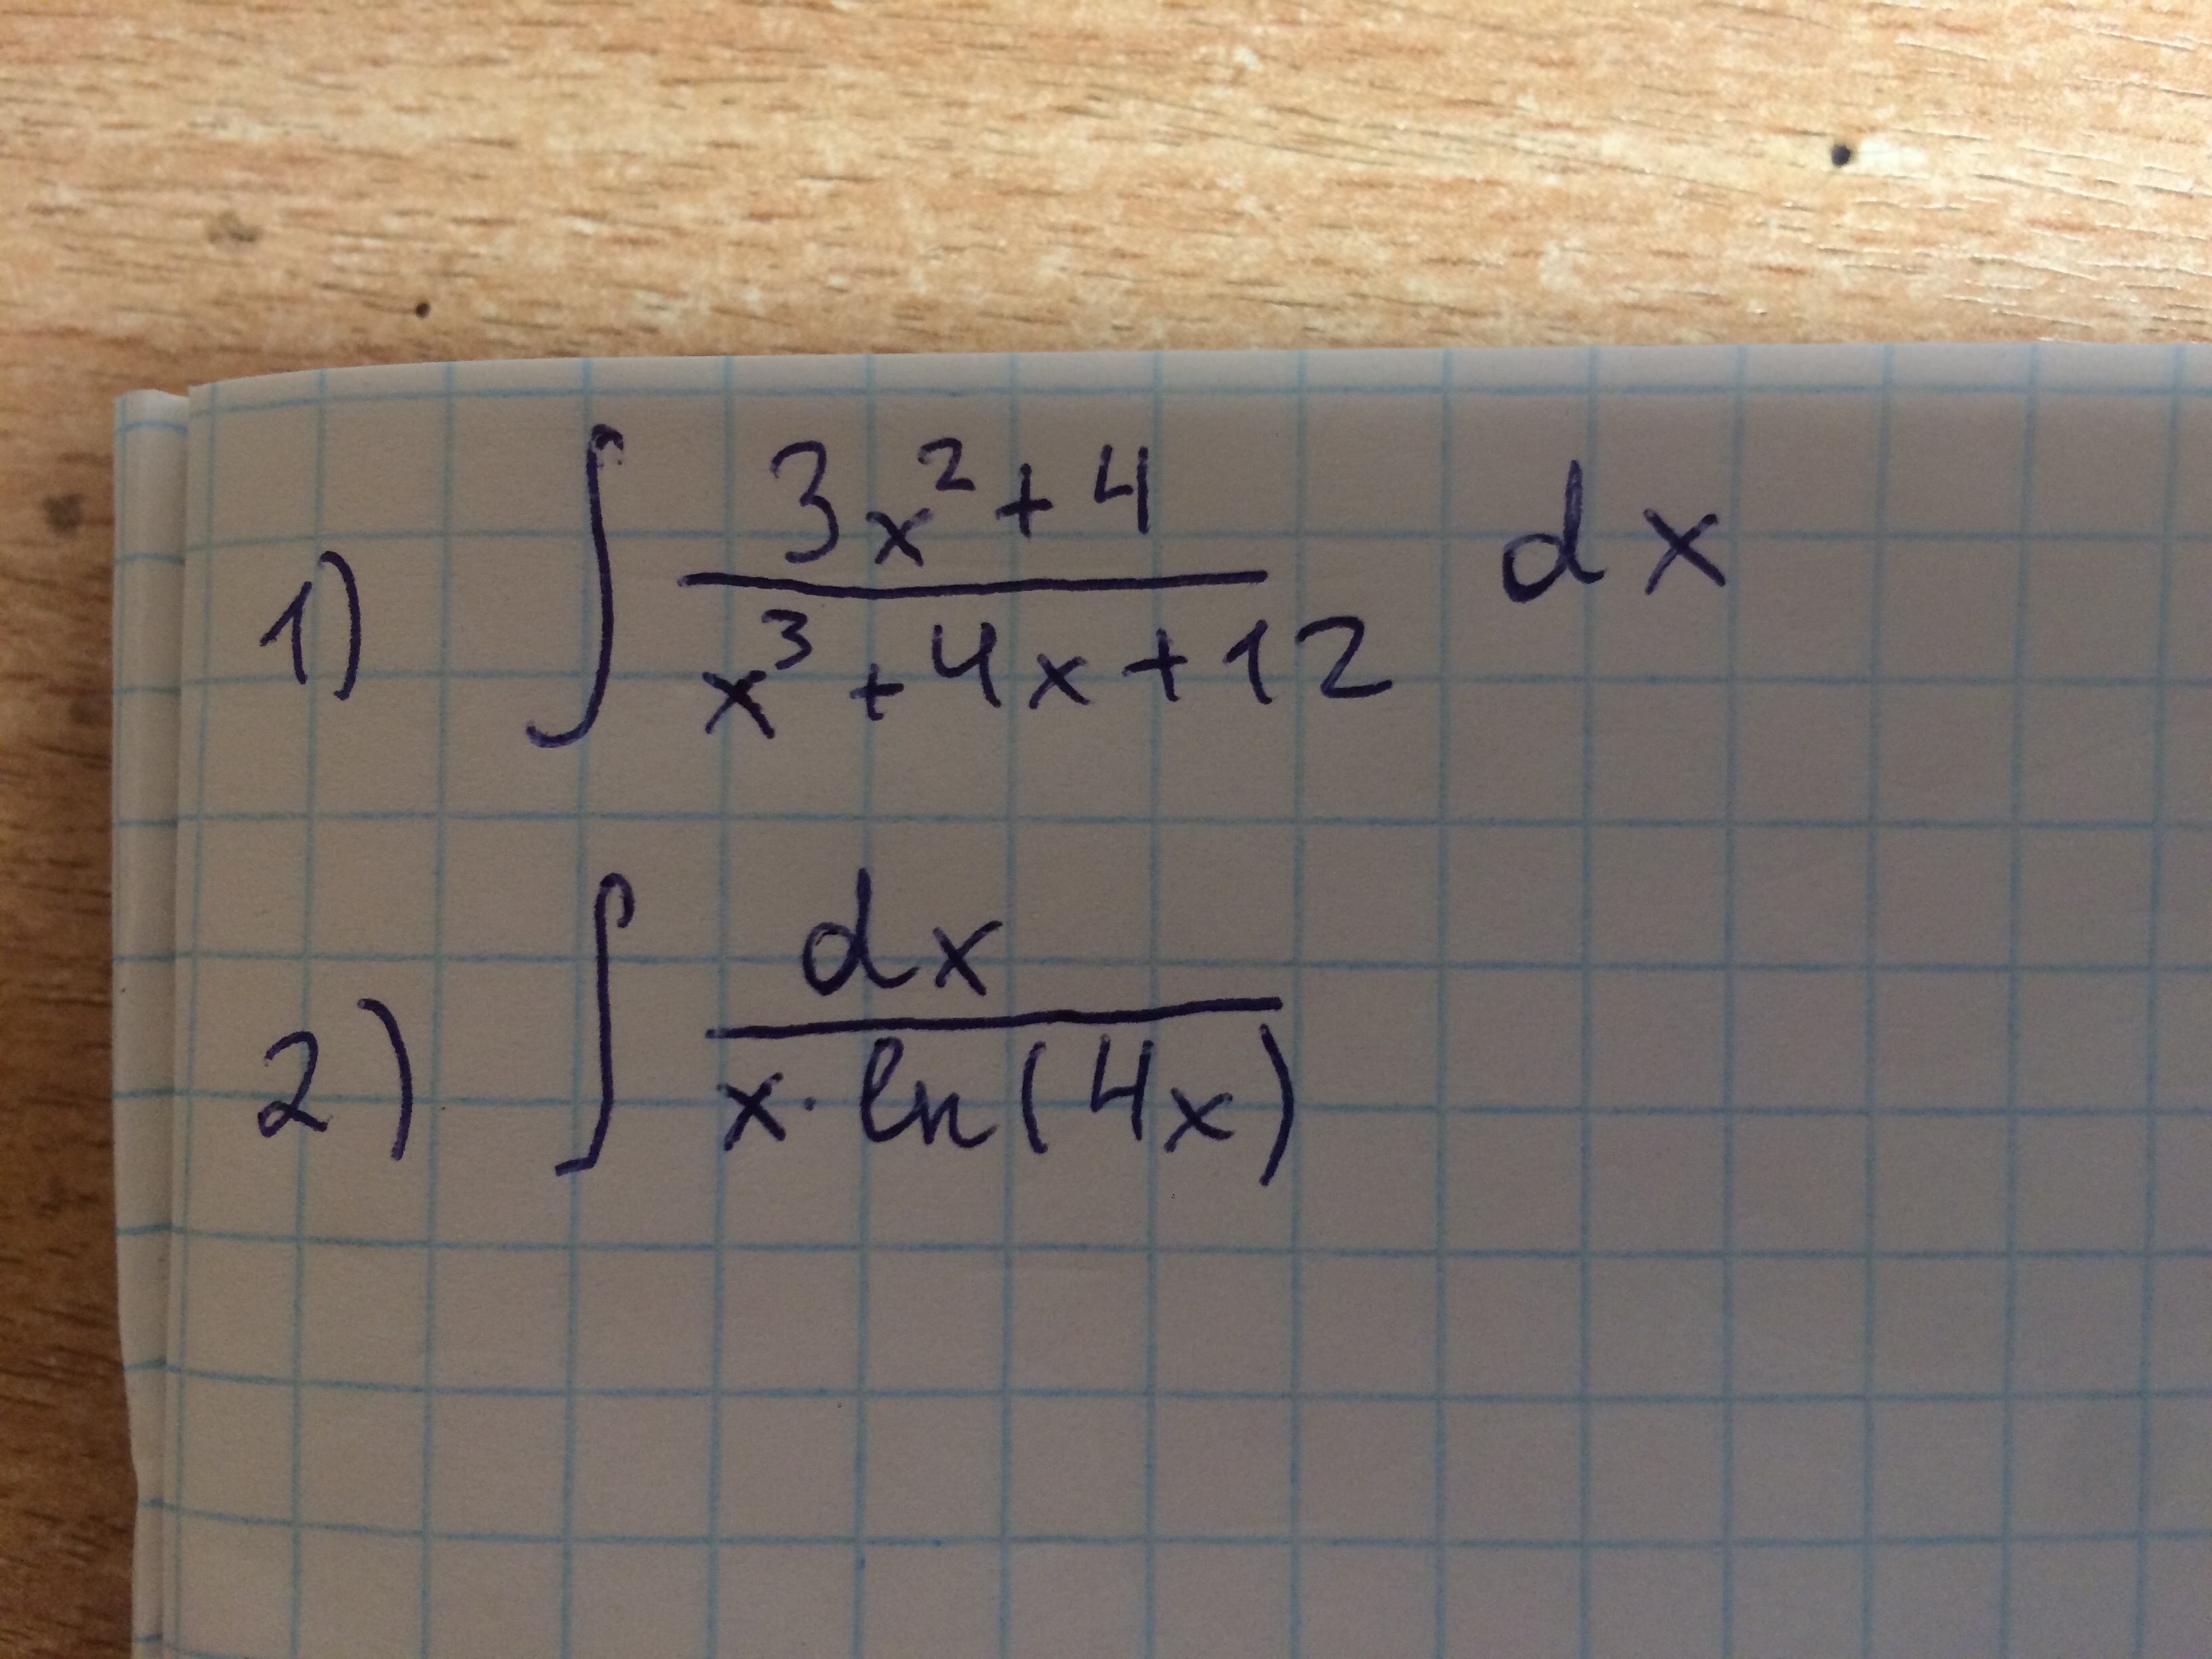 1) ∫ (3x² + 4)/(x³ + 4x + 12) dx
2) ∫ dx/(x · ln(4x))